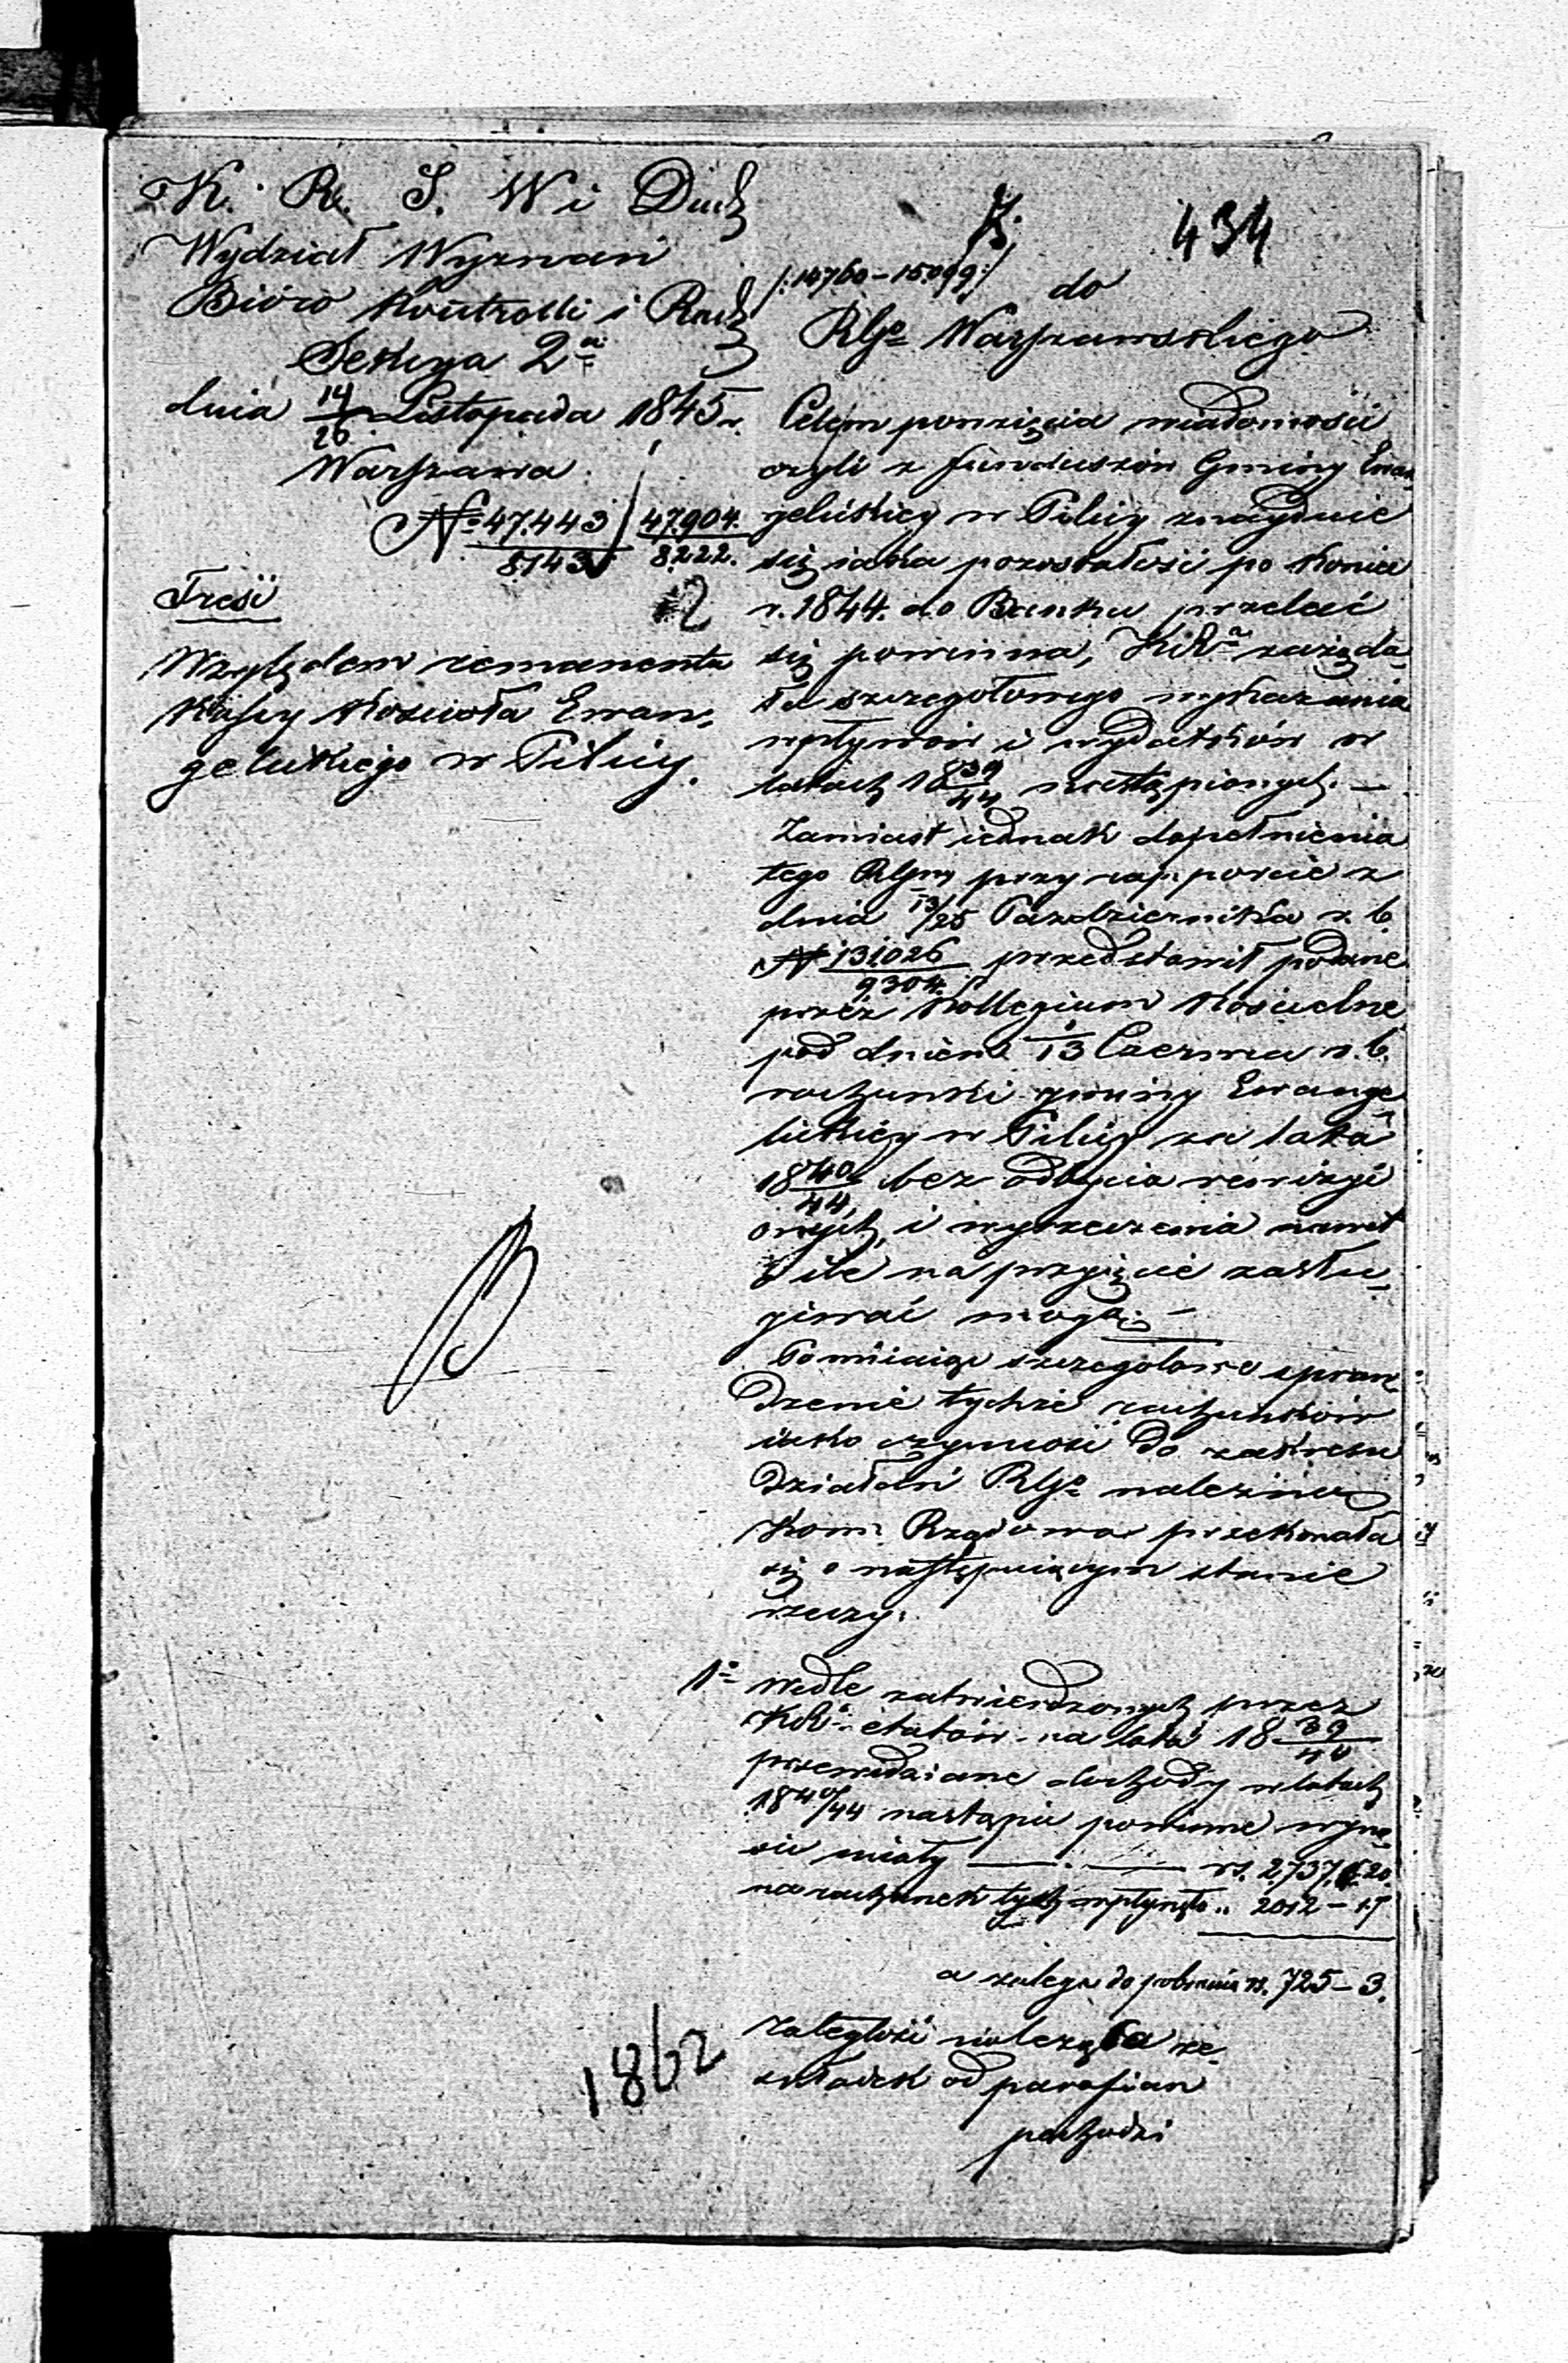 K. R. S. W i Duch
Wydział Wyznań
Bióro Kontrolli i Rach
Sekcya 2ª
dnia 14/26 Listopada 1845 r.
Warszawa
№ 47.443/8143 / 47.904./8222.
2
Treść
Względem remanentu
Kassy Kościoła Ewan,
gelickiego w Pilicy.
434
/:14760-15099:/
do
RGo Warszawskiego
Celem powzięcia wiadomości
czyli z funduszów Gminy Ewan,
gelickiey w Pilicy znayduie
się iaka pozostałość po końcu
r. 1844. do Banku przelać
się powinna, KRa zażąda,
ła szczegółowego wykazania
wpływów i wydatków w
latach 1839/44 nastąpionych. —
Zamiast iednak dopełnienia
tego RGny przy rapporcie z
dnia 13/25 Października r. b.
№ 131026/9304. przedstawił podane
przez Kollegium Kościelne
pod dniem 1/13 Czerwca r. b.
rachunki gminy Ewange,
lickiey w Pilicy za lata
1840/44 bez odbycia rewizyi
onych, i wyrzeczenia nawet
o ile na przyięcie zasłu,
giwać mogą. —
Pomiiaiąc szczegółowe spraw,
dzenie tychże rachunków
iako czynność do zakresu
działań RGo należną
Kom: Rządowa przekonała
się o następuiącym stanie
rzeczy.
1º wedle zatwierdzonych przez
KRª etatów na lata 1839/40
przewidziane dochody w latach
1840/44 nastąpić powinne wyno,
sić miały — . — rs. 2,737, k. 20.
na rachunek tych wpłynęło „ 2012 – 17
a zalega do pobrania rs. 725 – 3.
Zaległość należąca ze
składek od parafian
pochodzi
1862